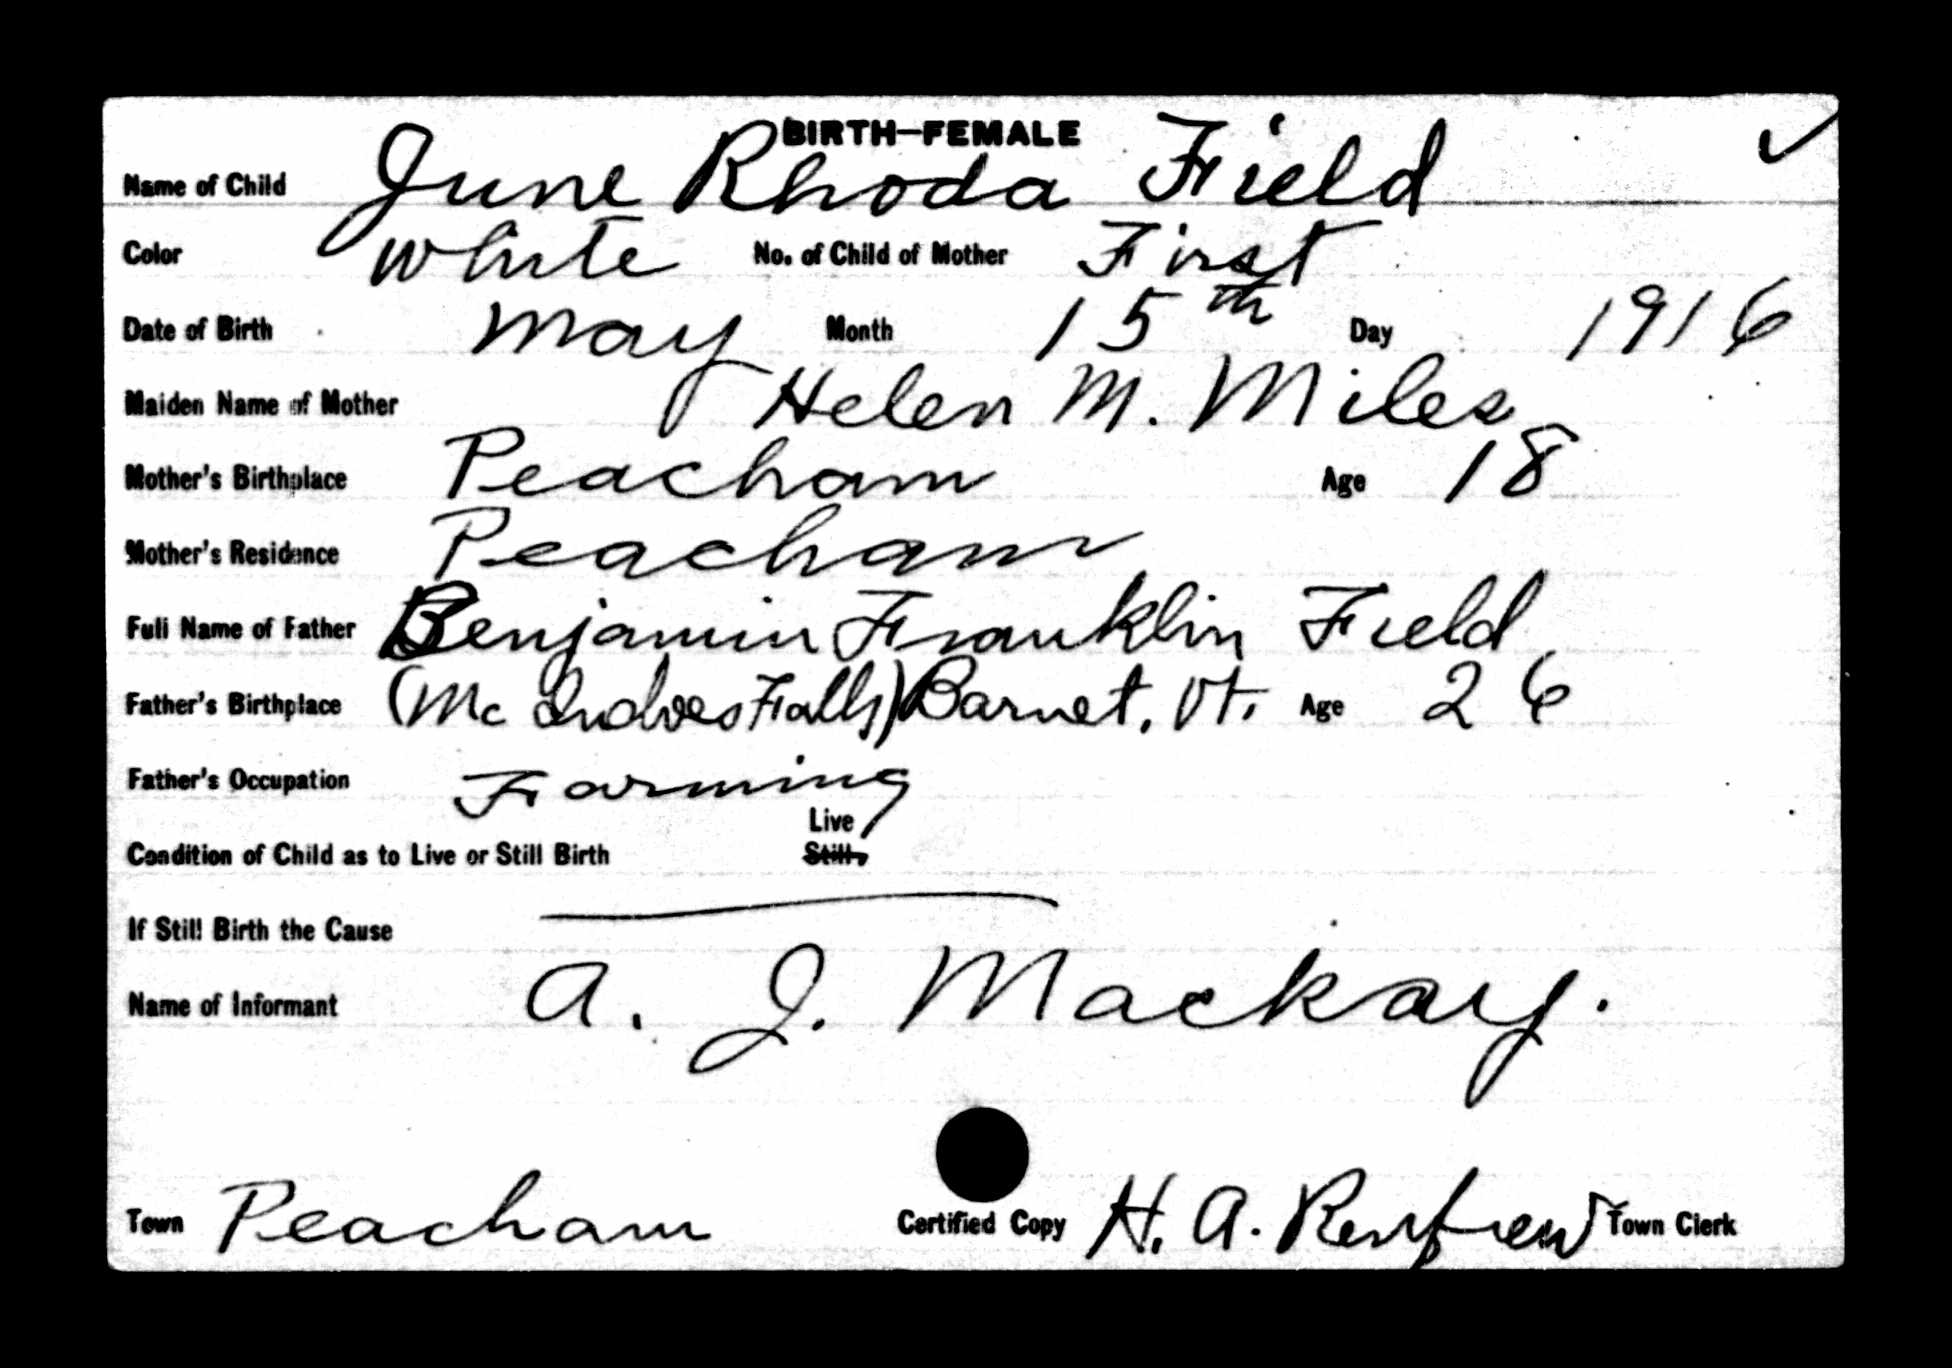 BIRTH—FEMALE
Name of Child June Rhoda Field
Color White No. of Child of Mother First
Date of Birth May Month 15th Day 1916
Maiden Name of Mother Helen M. Miles
Mother's Birthplace Peacham Age 18
Mother's Residence Peacham
Full Name of Father Benjamin Franklin Field
Father's Birthplace (Mc Indoes Falls) Barnet, Vt. Age 26
Father's Occupation Farming
Live
Condition of Child as to Live or Still Birth Still.
If Still Birth the Cause
Name of Informant A. J. Mackay.
Town Peacham Certified Copy H. A. Renfrew Town Clerk